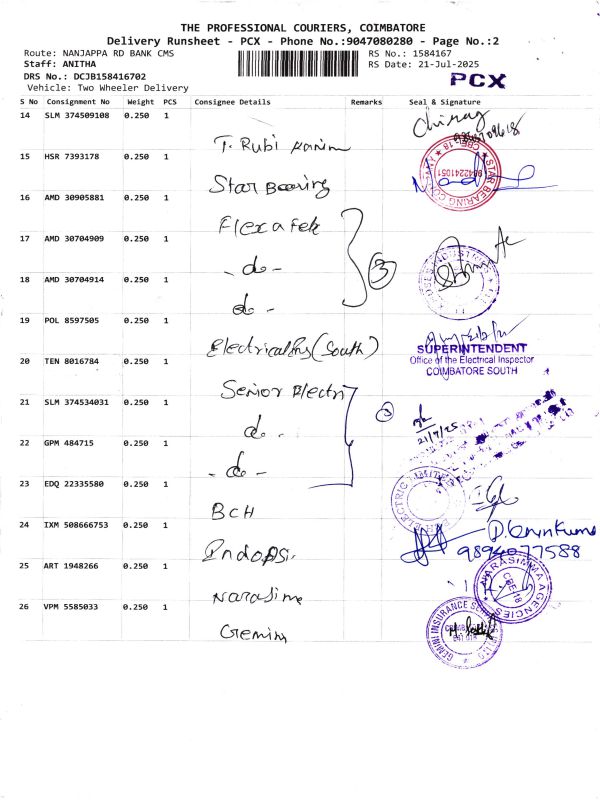 THE PROFESSIONAL COURIERS, COIMBATORE
Delivery Runsheet - PCX - Phone No.:9047080280 - Page No.:2
Route: NANJAPPA RD BANK CMS
RS No.: 1584167
Staff: ANITHA
RS Date: 21-Jul-2025
DRS No.: DCJB158416702
PCX
Vehicle: Two Wheeler Delivery
S No Consignment No Weight PCS Consignee Details Remarks Seal & Signature
14 SLM 374509108 0.250 1
T. Rubi
Chirag
15 HSR 7393178 0.250 1
Star Bearing
STAR BEARING COMPANY
9842241051
CBE-18
16 AMD 30905881 0.250 1
Flexatek
17 AMD 30704909 0.250 1
- do -
3
18 AMD 30704914 0.250 1
do -
19 POL 8597505 0.250 1
Electrical Ins (South)
SUPERINTENDENT
Office of the Electrical Inspector
COIMBATORE SOUTH
20 TEN 8016784 0.250 1
Senior Electri
21 SLM 374534031 0.250 1
do -
21/7/25
22 GPM 484715 0.250 1
- do -
23 EDQ 22335580 0.250 1
BCH
ELECTRIC LIMITED
24 IXM 508666753 0.250 1
Indopsi.
9894077588
25 ART 1948266 0.250 1
Narasime
NARASIMMA AGENCIES
CBE-18
26 VPM 5585033 0.250 1
Gemini
GEMINI INSURANCE